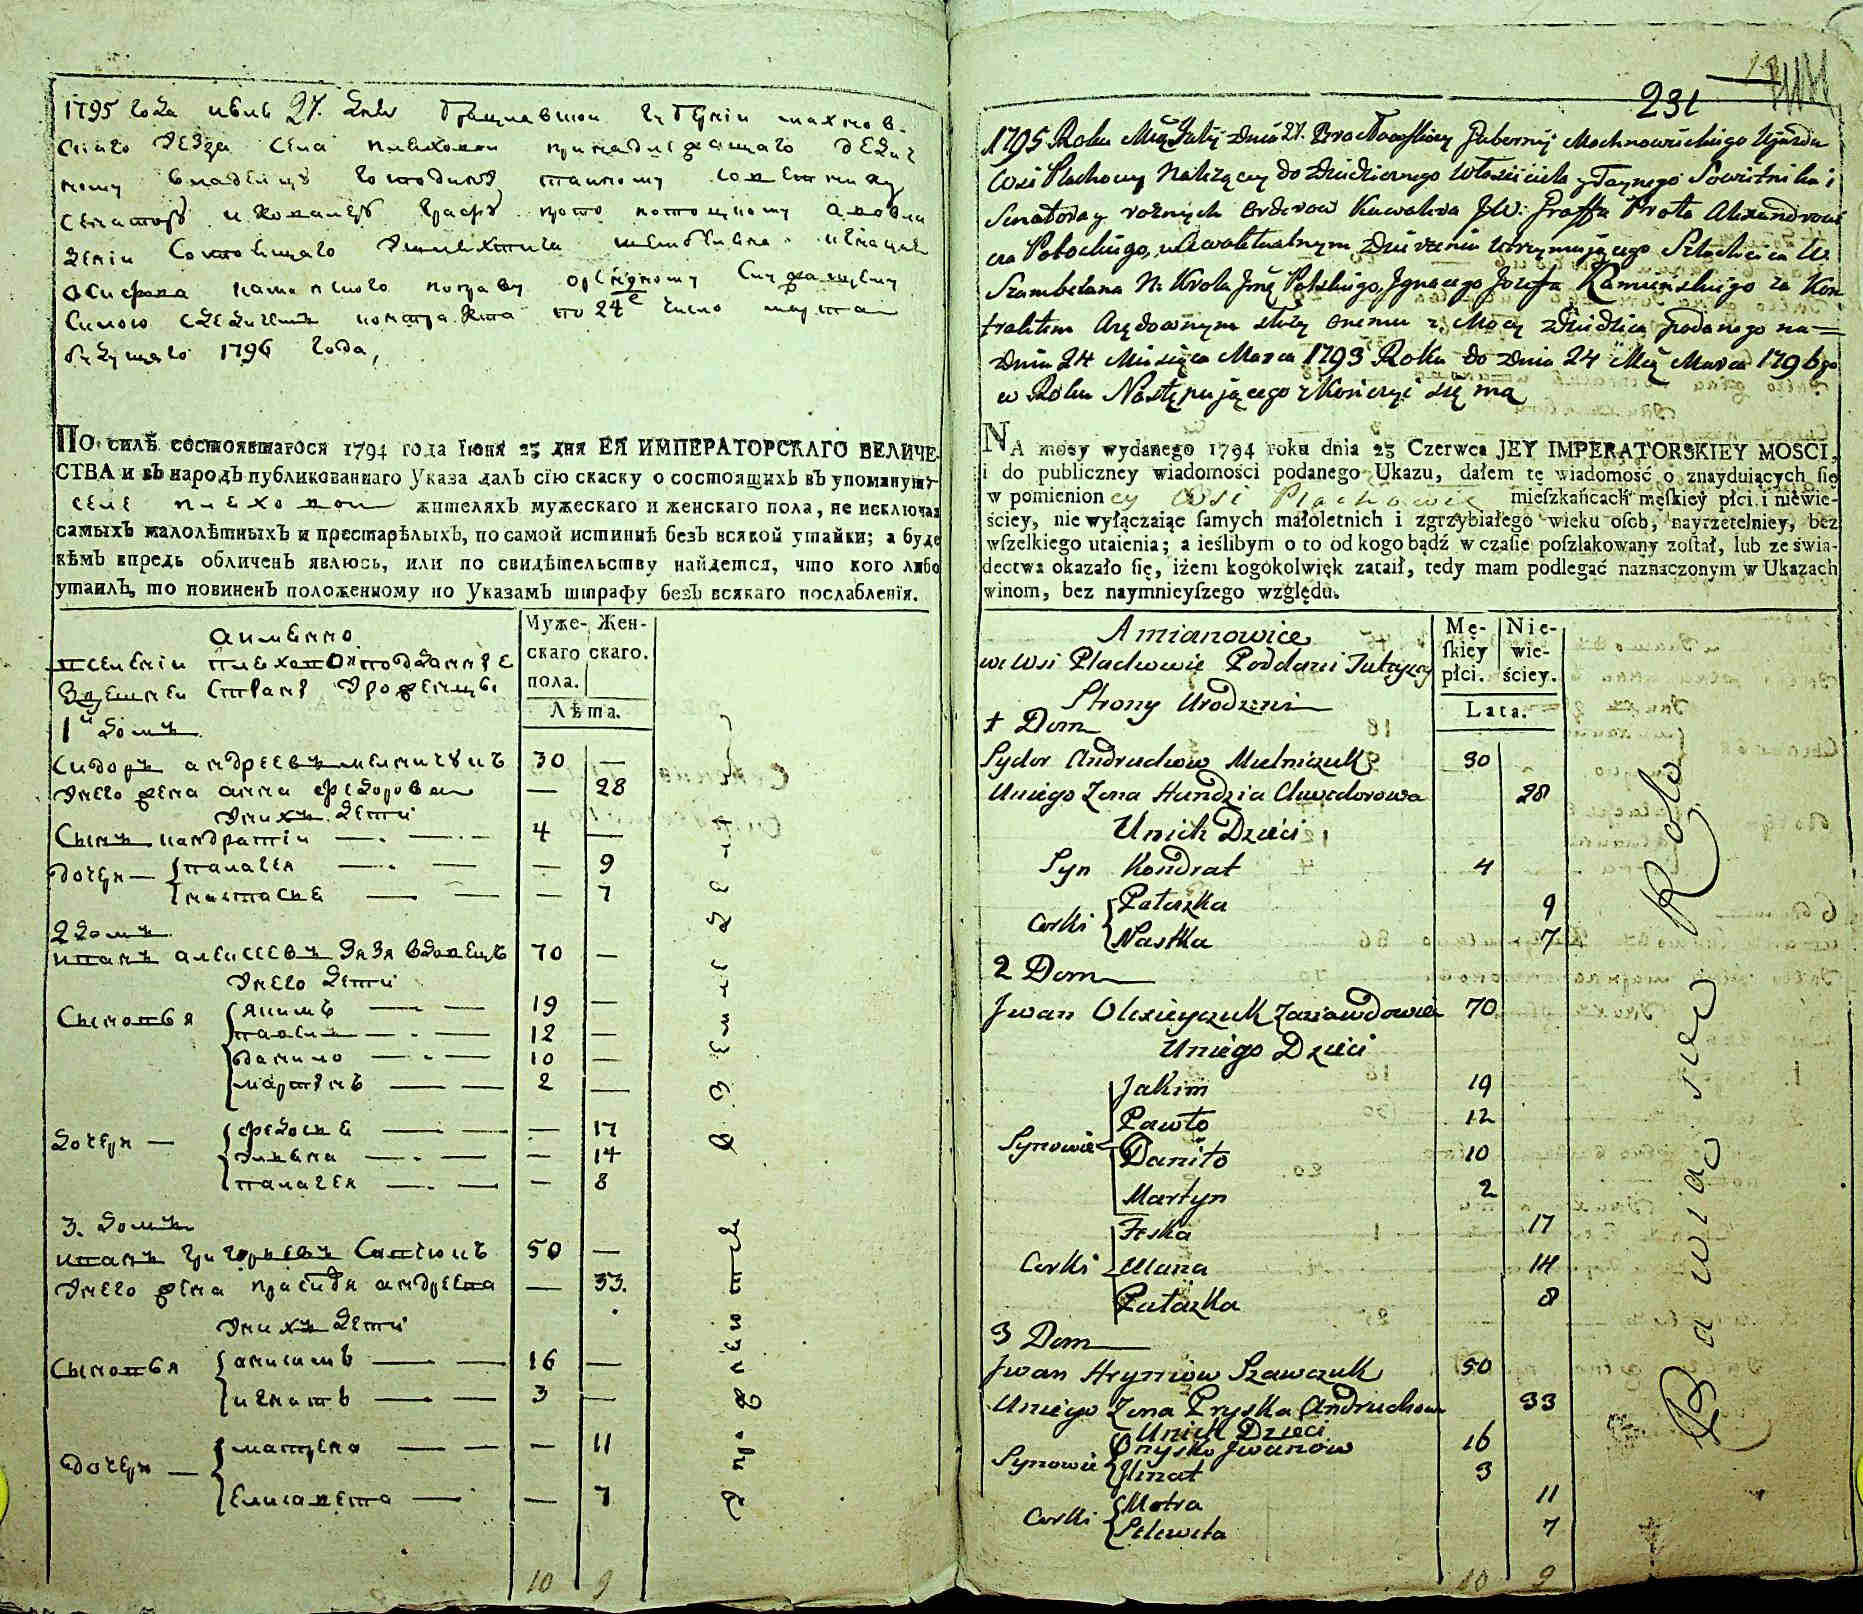 1795 года июнь 27. дня Брацлавской губерніи махнов-
скаго уезда села пляховой принадлежащаго дедич
ному владельцу господину тайному советнику
сенатору и кавалеру графу прото потоцкому а во вла
деніи состоящаго
камергера
Силою контракта по 24е число марта
будущаго 1796 года,
ПО силѣ состоявшагося 1794 года Іюня 23 дня ЕЯ ИМПЕРАТОРСКАГО ВЕЛИЧЕ-
СТВА и въ народъ публикованнаго Указа далъ сїю скаску о состоящихъ въ упомянут-
селе пляховой жителяхъ мужескаго и женскаго пола, не исключая
самыхъ малолѣтныхъ и престарѣлыхъ, по самой истиннѣ безъ всякой утайки; а буде
кѣмъ впредь обличенъ явлюсь, или по свидѣтельству найдется, что кого либо
утаилъ, то повиненъ положенному по Указамъ штрафу безъ всякаго послабленїя.
Муже- Жен-
скаго скаго.
пола.
Лѣта.
а именно
в селении пляховой подданые
здешней стран уроженцы
1й домъ
Сидоръ андреевъ мелничукъ 30 —
у него жена анна федорова — 28
у нихъ дети
Сынъ кондратій 4 —
дочери палагея — 9
настасия — 7
2 домъ
иванъ алексеевъ вдовецъ 70 —
у него дети
Сыновья якимъ 19 —
павелъ 12 —
данило 10 —
мартынъ 2 —
дочери федосия — 17
ульяна — 14
палагея — 8
3. домъ
иванъ григорьевъ 50 —
у него жена андреева — 33.
у нихъ дети
Сыновья анисимъ 16 —
игнатъ 3 —
дочери матрена — 11
елисавета — 7
10 9
231
1795 Roku Dnia 27. Bracławskiey Gubernij Machnowieckiego Ujazdu
Wsi Plachowy Należący do Dziedzicznego Właściciela Taynego Sowietnika i
Senatora y rożnych Orderow Kawalera JW: Graffa Prota Alexandrowi
cza Potockiego, w Aktualnym Dzierżeniu utrzymującego Szlachcica W.
Szambelana N. Krola Jmć Polskiego, Jgnacego Jozefa Kamienskiego za Kon
traktem Arędownym z Mocy Dziedzica podanego na=
Dnia 24 Miesiąca Marca 1793 Roku do Dnia 24 Mca Marca 1796go
w Roku Następującego zkończyć się ma
NA mocy wydanego 1794 roku dnia 23 Czerwca JEY IMPERATORSKIEY MOSCI,
i do publiczney wiadomości podanego Ukazu, dałem tę wiadomość o znayduiących się
w pomienioney Wsi Plachowie mieſzkańcach męſkiey płci i niewie-
ściey, nie wyłączaiąc ſamych małoletnich i zgrzybiałego wieku oſob, nayrzetelniey, bez
wſzelkiego utaienia; a ieślibym o to od kogo bądź w czaſie poſzlakowany zoſtał, lub ze świa-
dectwa okazało ſię, iżem kogokolwięk zataił, tedy mam podlegać naznaczonym w Ukazach
winom, bez naymnieyſzego względu.
Mę- Nie-
ſkiey wie-
płci. ściey.
Lata.
A mianowice
we Wsi Plachowie Poddani Tuteyszy
Strony Urodzeni
1 Dom
Sydor Andruchow Mielniczuk 30
U niego Żona Handzia Chwedorowa 28
U nich Dzieci
Syn Kondrat 4
Corki Palazka 9
Nastka 7
2 Dom
Jwan Olexieyczuk 70
U niego Dzieci
Synowie Jakim 19
Pawło 12
Daniło 10
Martyn 2
Corki Feska 17
Ulana 14
Palazka 8
3 Dom
Jwan Hryniow Szawczuk 50
U niego Żona Pryska Andruchow 33
U nich Dzieci
Synowie Onysko Jwanow 16
Jhnat 3
Corki Motra 11
Seleweta 7
10 9